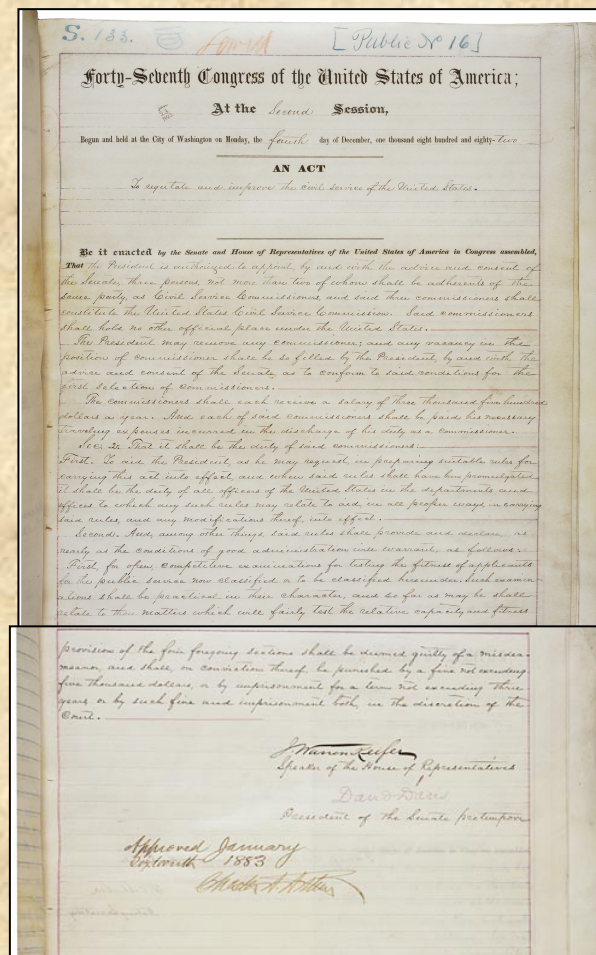 S. 133.
[Public No 16]
Forty-Seventh Congress of the United States of America;
At the Second Session,
Begun and held at the City of Washington on Monday, the fourth day of December, one thousand eight hundred and eighty-two
AN ACT
To regulate and improve the civil service of the United States.
Be it enacted by the Senate and House of Representatives of the United States of America in Congress assembled,
That the President is authorized to appoint, by and with the advice and consent of
the Senate, three persons, not more than two of whom shall be adherents of the
same party, as Civil Service Commissioners, and said three commissioners shall
constitute the United States Civil Service Commission. Said commissioners
shall hold no other official place under the United States.
The President may remove any commissioner; and any vacancy in the
position of commissioner shall be so filled by the President, by and with the
advice and consent of the Senate, as to conform to said conditions for the
first selection of commissioners.
The commissioners shall each receive a salary of three thousand five hundred
dollars a year. And each of said commissioners shall be paid his necessary
traveling expenses incurred in the discharge of his duty as a commissioner.
Sec. 2. That it shall be the duty of said commissioners:
First. To aid the President, as he may request, in preparing suitable rules for
carrying this act into effect, and when said rules shall have been promulgated
it shall be the duty of all officers of the United States in the departments and
offices to which any such rules may relate to aid, in all proper ways, in carrying
said rules, and any modifications thereof, into effect.
Second. And, among other things, said rules shall provide and declare, as
nearly as the conditions of good administration will warrant, as follows:
First, for open, competitive examinations for testing the fitness of applicants
for the public service now classified or to be classified hereunder. Such examin-
ations shall be practical in their character, and so far as may be shall
relate to those matters which will fairly test the relative capacity and fitness
provision of the four foregoing sections shall be deemed guilty of a misde-
meanor, and shall, on conviction thereof, be punished by a fine not exceeding
five thousand dollars, or by imprisonment for a term not exceeding three
years, or by such fine and imprisonment both, in the discretion of the
Court.
J. Warren Keifer
Speaker of the House of Representatives
David Davis
President of the Senate pro tempore
Approved January
Sixteenth 1883
Chester A. Arthur